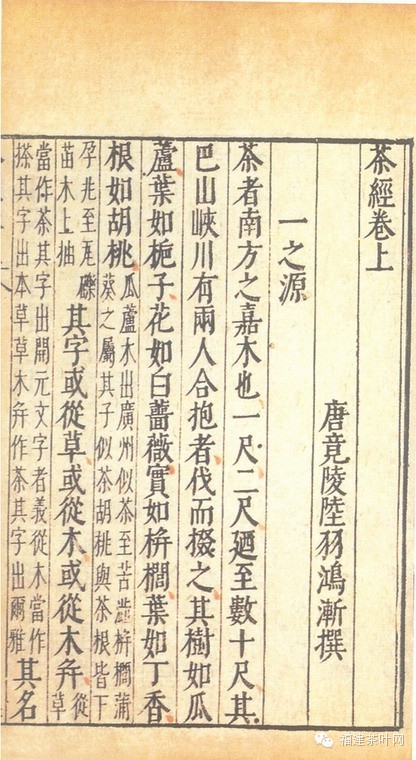 茶經卷上
唐竟陵陸羽鴻漸撰
一之源
茶者南方之嘉木也一尺二尺廼至數十尺其
巴山峽川有兩人合抱者伐而掇之其樹如瓜
蘆葉如梔子花如白薔薇實如栟櫚葉如丁香
根如胡桃瓜蘆木出廣州似茶至苦澁栟櫚蒲葵之屬其子似茶胡桃與茶根皆下
孕兆至瓦礫苗木上抽其字或從草或從木或從木并從草
當作茶其字出開元文字者義從木當作搽其字出本草草木并作茶其字出爾雅其名
福建茶叶网